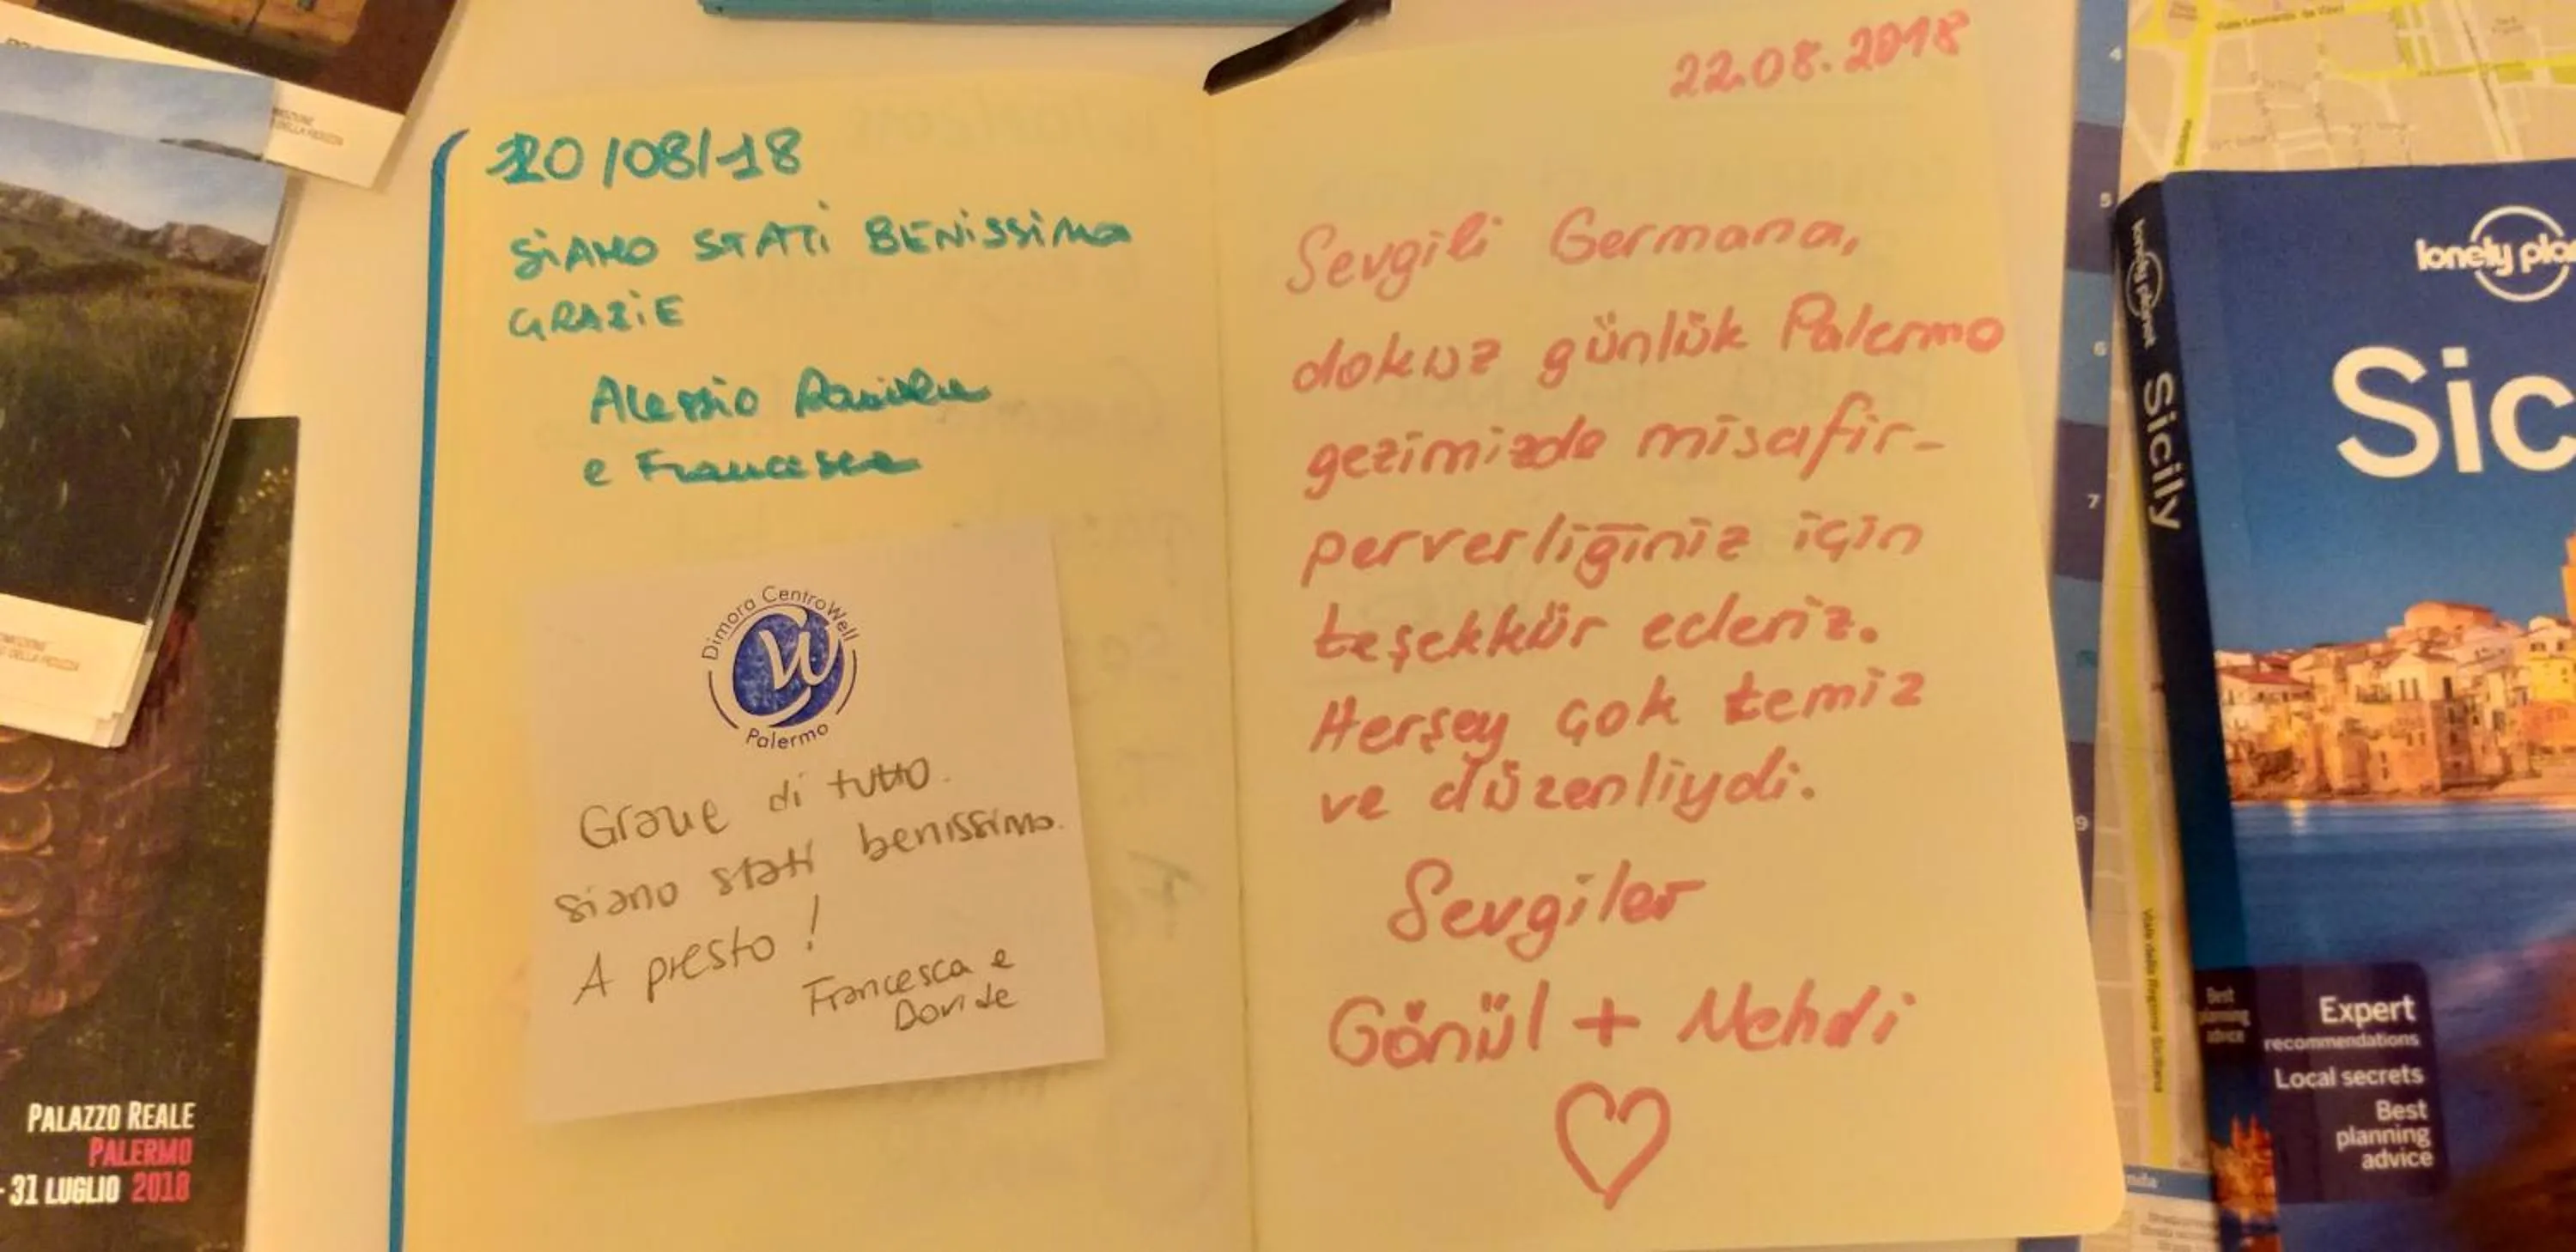 20/08/18
SiAMO STATi BENiSSiMO
GRAZiE
Alessio
e Francesca
Dimora CentroWell
CW
Palermo
Grazie di tutto.
siamo stati benissimo.
A presto!
Francesca e
Davide
22.08.2018
Sevgili Germana,
dokuz günlük Palermo
gezimizde misafir-
perverliğiniz için
teşekkür ederiz.
Herşey çok temiz
ve düzenliydi.
Sevgiler
Gönül + Mehdi
PALAZZO REALE
PALERMO
- 31 LUGLIO 2018
lonely planet Sicily
lonely pla
Sic
Best
planning
advice
Expert
recommendations
Local secrets
Best
planning
advice
4
5
6
7
9
Viale Leonardo da Vinci
Viale della Regione Siciliana